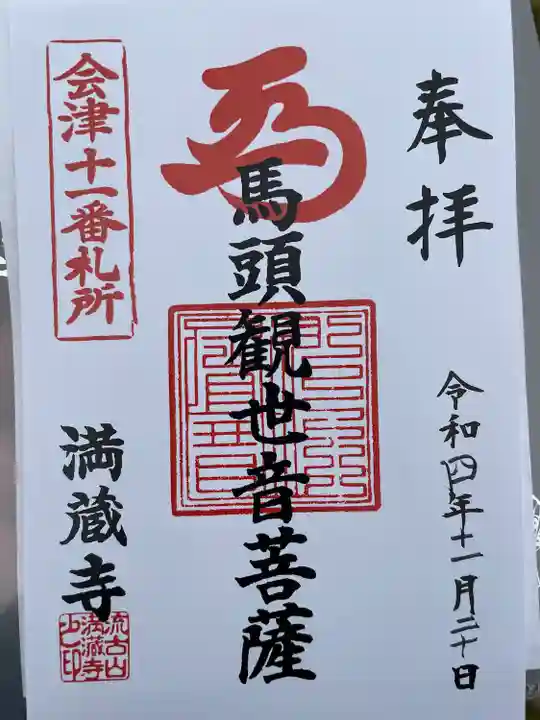 奉拝
令和四年十一月二十日
馬頭観世音菩薩
会津十一番札所
満蔵寺
流古山
満蔵寺
之印